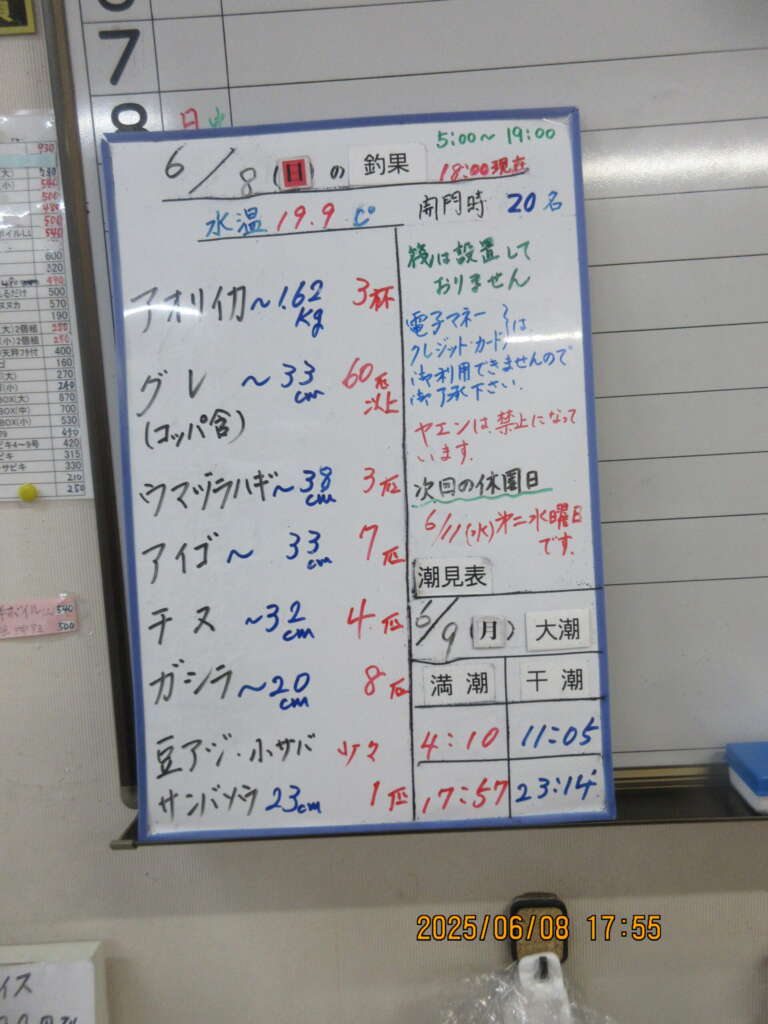 7
8 日
5:00～19:00
6/8(日)の 釣果 18:00現在
水温 19.9 C° 開門時 20名
アオリイカ～1.62Kg 3杯
グレ ～33cm 60匹以上
(コッパ含)
ウマヅラハギ～38cm 3匹
アイゴ～ 33cm 7匹
チヌ ～32cm 4匹
ガシラ～20cm 8匹
豆アジ・小サバ 少々
サンバソウ 23cm 1匹
筏は設置して
おりません
電子マネー
クレジット・カード は
御利用できませんので
御了承下さい.
ヤエンは禁止になって
います.
次回の休園日
6/11(水)第二水曜日
です.
潮見表
6/9(月) 大潮
満潮 干潮
4:10 11:05
17:57 23:14
930
600
220
500
570
190
(大)2個組
(小)2個組
400
160
(大) 270
(小)
BOX(大) 870
BOX(中) 700
BOX(小) 530
450
ビキ4～9号 420
315
サビキ 330
210
250
540
500
イス
2025/06/08 17:55